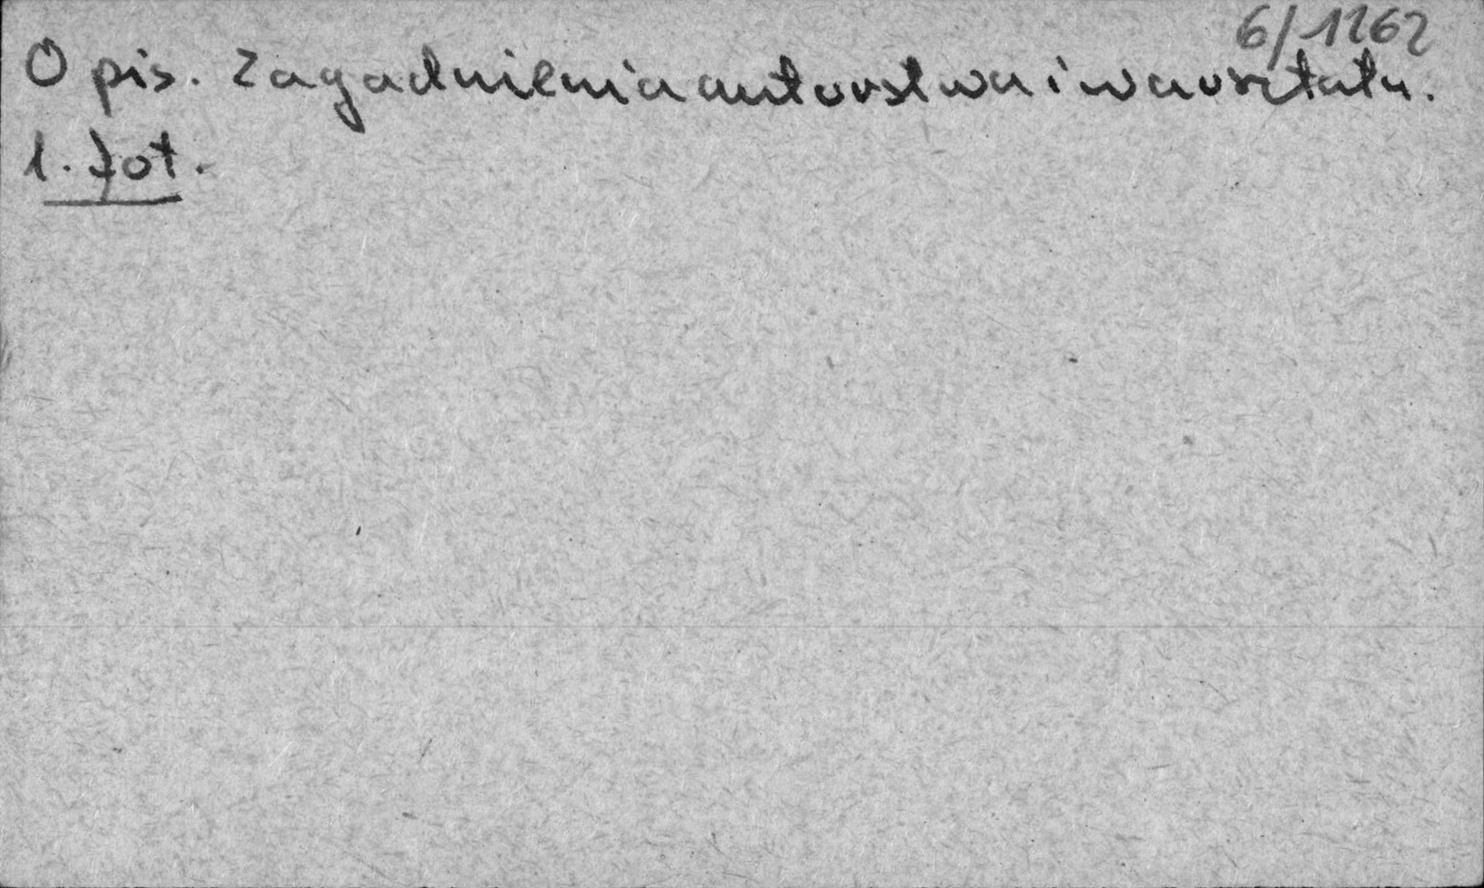 6/1262
Opis. Zagadnienia autorstwa i warsztatu.
1. fot.